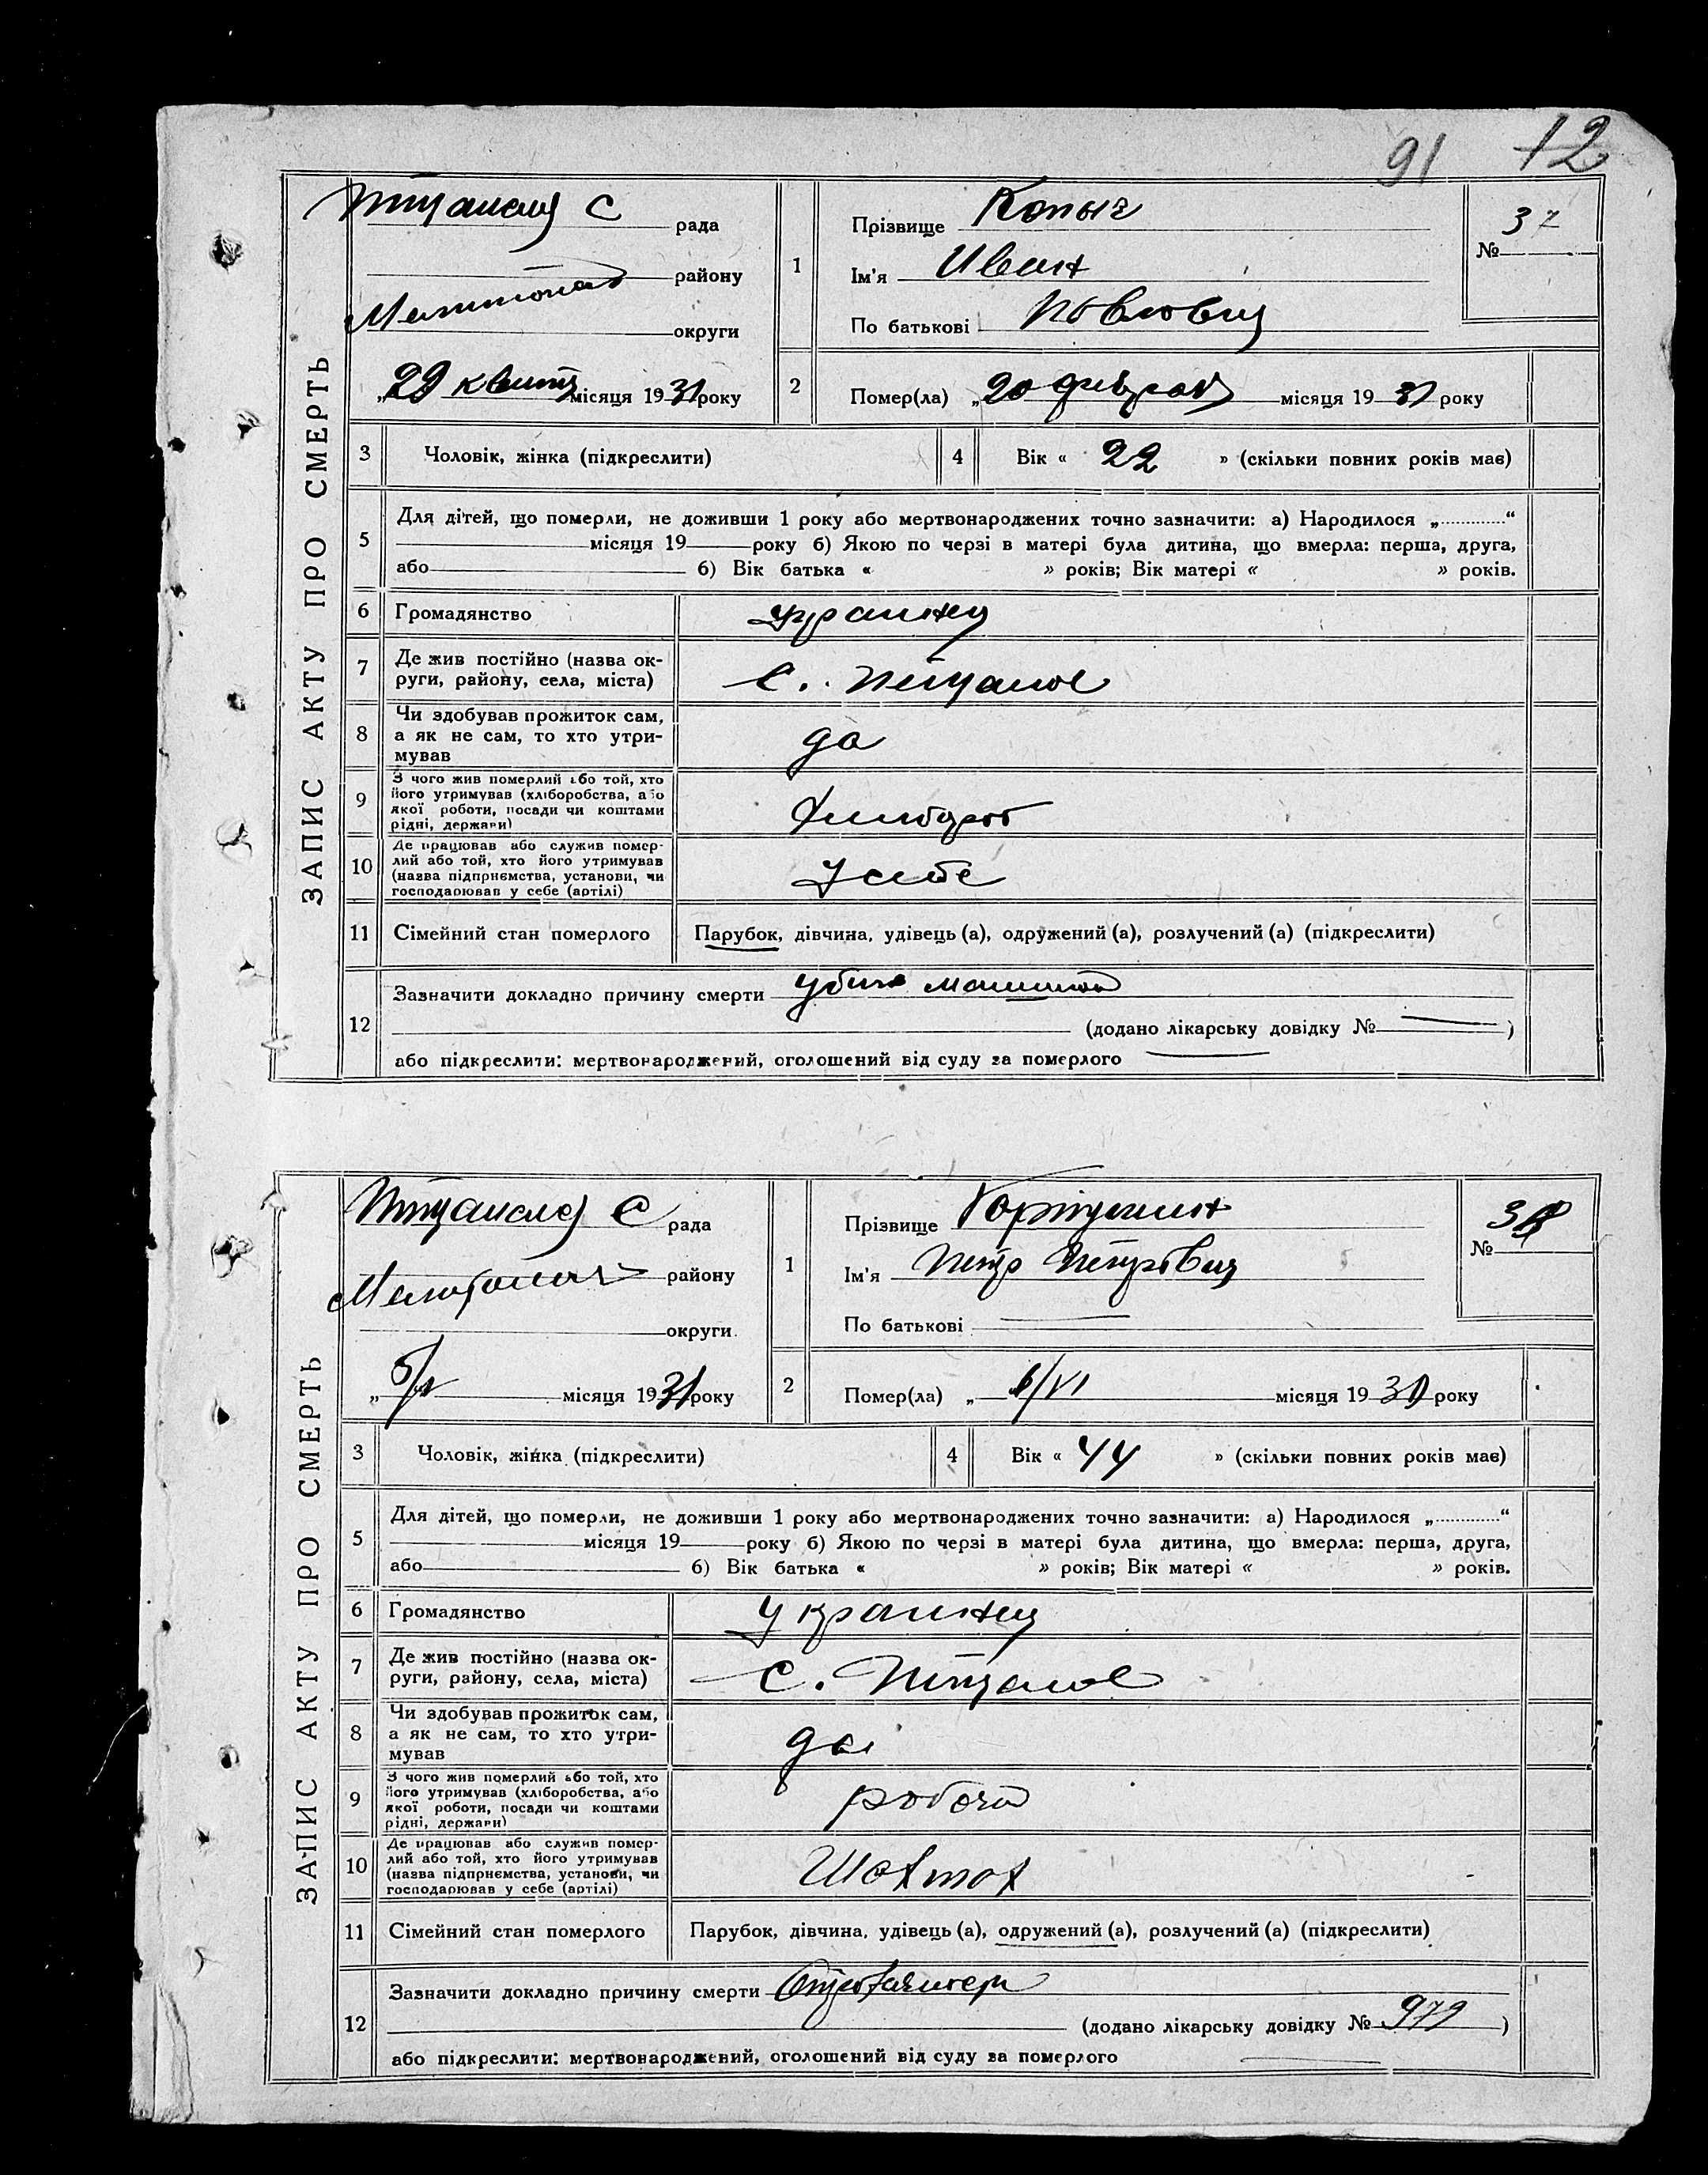 91 12
ЗАПИС АКТУ ПРО СМЕРТЬ
С рада
району
округи
„29 місяця 1931 року
1
Прізвище Копыч
Ім'я Иван
По батькові
№ 37
2
Помер(ла) „20 місяця 19 року
3 Чоловік, жінка (підкреслити)
4 Вік « 22 » (скільки повних років має)
5 Для дітей, що померли, не доживши 1 року або мертвонароджених точно зазначити: а) Народилося „............“
місяця 19 року б) Якою по черзі в матері була дитина, що вмерла: перша, друга,
або б) Вік батька « » років; Вік матері « » років.
6 Громадянство
7 Де жив постійно (назва ок-
руги, району, села, міста)
с.
8 Чи здобував прожиток сам,
а як не сам, то хто утри-
мував
да
9 З чого жив померлий або той, хто
його утримував (хліборобства, або
якої роботи, посади чи коштами
рідні, держави)
10 Де працював або служив помер-
лий або той, хто його утримував
(назва підприємства, установи, чи
господарював у себе (артілі)
У себе
11 Сімейний стан померлого
Парубок, дівчина, удівець (а), одружений (а), розлучений (а) (підкреслити)
12 Зазначити докладно причину смерти машиной
(додано лікарську довідку № )
або підкреслити: мертвонароджений, оголошений від суду за померлого
ЗАПИС АКТУ ПРО СМЕРТЬ
С рада
району
округи
„ місяця 1931 року
1
Прізвище
Ім'я Петр Петрович
По батькові
№
2
Помер(ла) „ /VI місяця 19 року
3 Чоловік, жінка (підкреслити)
4 Вік « 44 » (скільки повних років має)
5 Для дітей, що померли, не доживши 1 року або мертвонароджених точно зазначити: а) Народилося „............“
місяця 19 року б) Якою по черзі в матері була дитина, що вмерла: перша, друга,
або б) Вік батька « » років; Вік матері « » років.
6 Громадянство
7 Де жив постійно (назва ок-
руги, району, села, міста)
с.
8 Чи здобував прожиток сам,
а як не сам, то хто утри-
мував
да
9 З чого жив померлий або той, хто
його утримував (хліборобства, або
якої роботи, посади чи коштами
рідні, держави)
10 Де працював або служив помер-
лий або той, хто його утримував
(назва підприємства, установи, чи
господарював у себе (артілі)
Шахтах
11 Сімейний стан померлого
Парубок, дівчина, удівець (а), одружений (а), розлучений (а) (підкреслити)
12 Зазначити докладно причину смерти
(додано лікарську довідку № 979 )
або підкреслити: мертвонароджений, оголошений від суду за померлого